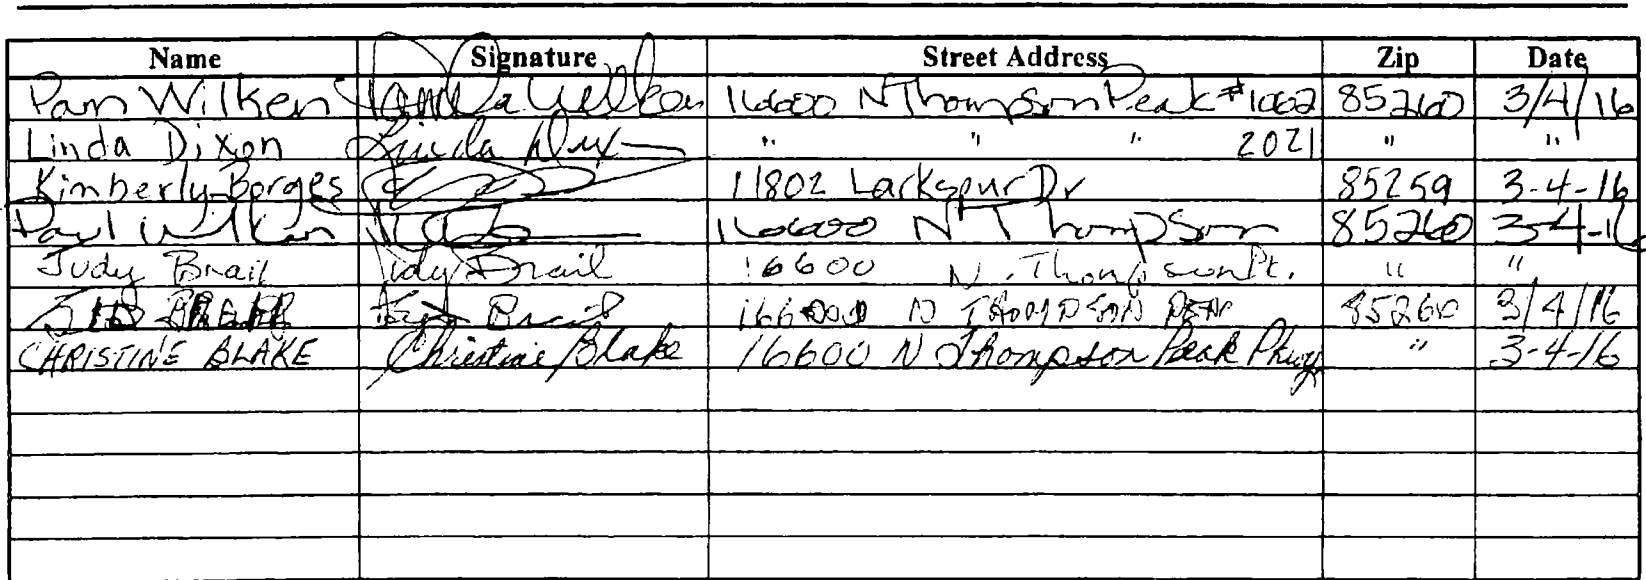 Name Signature Street Address Zip Date
Pam Wilken Pamela Wilken 16600 N Thompson Peak #1062 85260 3/4/16
Linda Dixon Linda Dix " " " 2021 " "
Kimberly Borges 11802 Larkspur Dr 85259 3-4-16
Paul Wilken 16600 N Thompson 85260 3-4-16
Judy Brail Judy Brail 16600 N. Thompson Pk. " "
Brail N THOMPSON 85260 3/4/16
CHRISTINE BLAKE Christine Blake 16600 N Thompson Peak Pkwy " 3-4-16